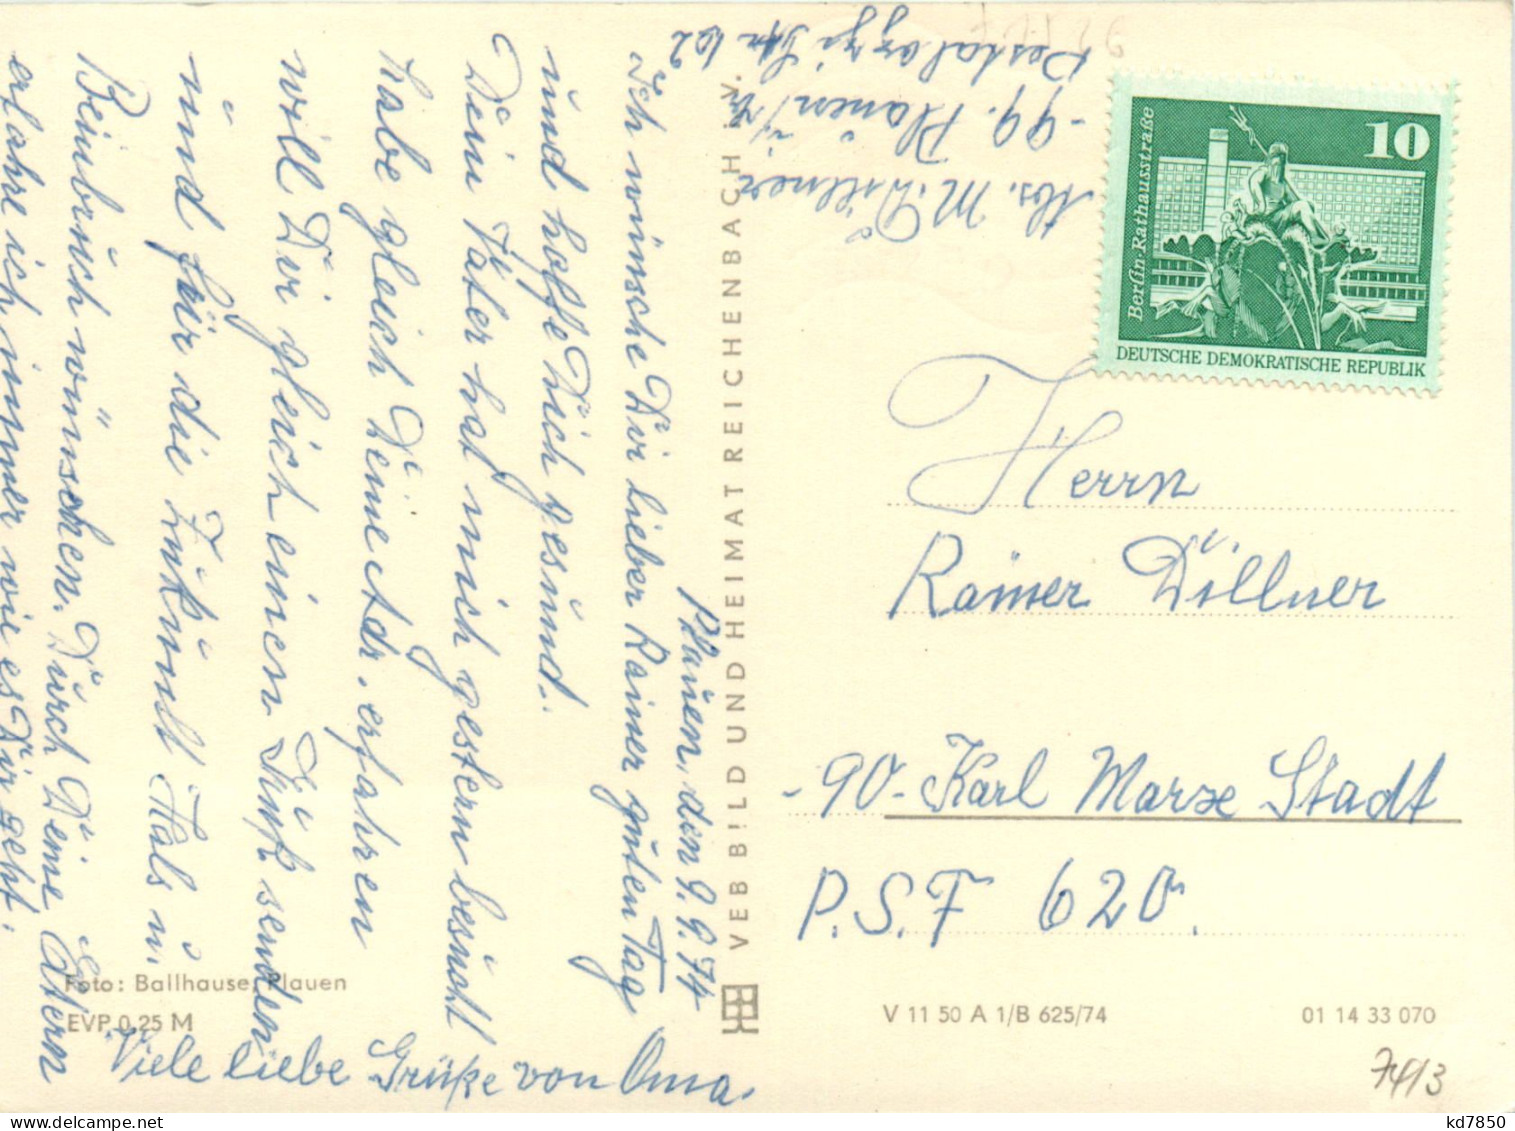 Plauen, den 9.9.74
Ich wünsche Dir lieber Rainer guten Tag
und hoffe Dich gesund.
Dein Vater hat mich gestern besucht
habe gleich Deine Adr. erfahren
will Dir gleich einen Gruß senden
und für die Zukunft Hals u.
Beinbruch wünschen. Durch Deine Eltern
erfahre ich immer wie es Dir geht.
Viele liebe Grüße von Oma.
Foto: Ballhause, Plauen
EVP 0,25 M
VEB BILD UND HEIMAT REICHENBACH i. V.
Abs. M. Dillner
-99. Plauen i/V.
Pestalozzi Str 62
10
Berlin·Rathausstraße
DEUTSCHE DEMOKRATISCHE REPUBLIK
Herrn
Rainer Dillner
-90- Karl Marx Stadt
P.S.F 620.
V 11 50 A 1/B 625/74
01 14 33 070
74/3
kd7850